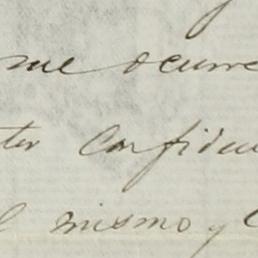 me ocurre
ter confiden
l mismo y